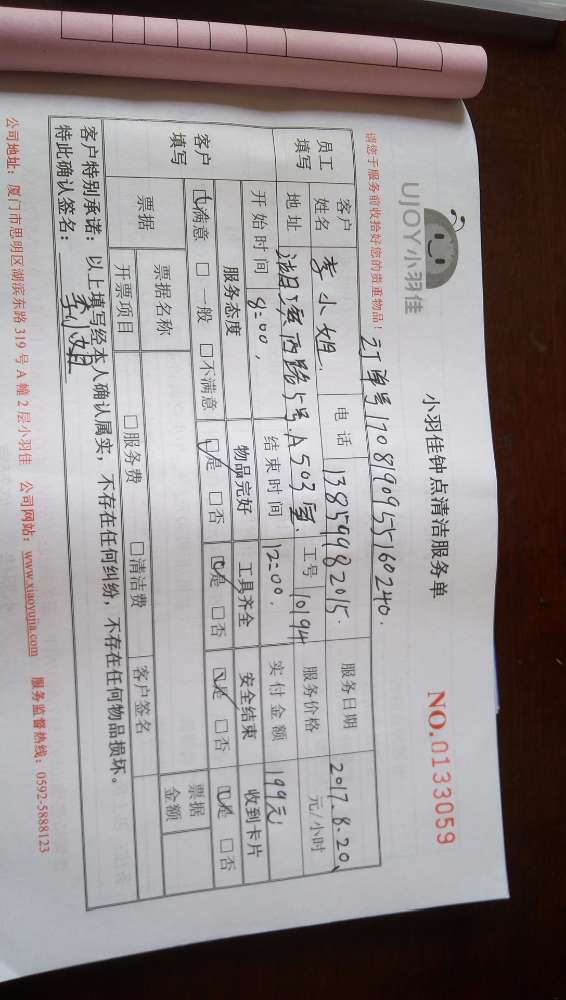 UJOY小羽佳
小羽佳钟点清洁服务单
NO.0133059
请您于服务前收拾好您的贵重物品!
订单号1708190955160240.
员工填写
客户姓名 李小姐. 电话 13859982015. 服务日期 2017.8.20
地址 湖滨西路5号.A503室. 工号 10194 服务价格 元/小时
开始时间 8:00, 结束时间 12:00. 实付金额 199元
客户填写
服务态度 物品完好 工具齐全 安全结束 收到卡片
☑满意 □一般 □不满意 ☑是 □否 ☑是 □否 ☑是 □否 ☑是 □否
票据 票据名称 票据金额
开票项目 □服务费 □清洁费 客户签名
客户特别承诺:以上填写经本人确认属实,不存在任何纠纷,不存在任何物品损坏。
特此确认签名: 李小姐
公司地址:厦门市思明区湖滨东路319号A幢2层小羽佳 公司网站:www.xiaoyujia.com 服务监督热线:0592-5888123